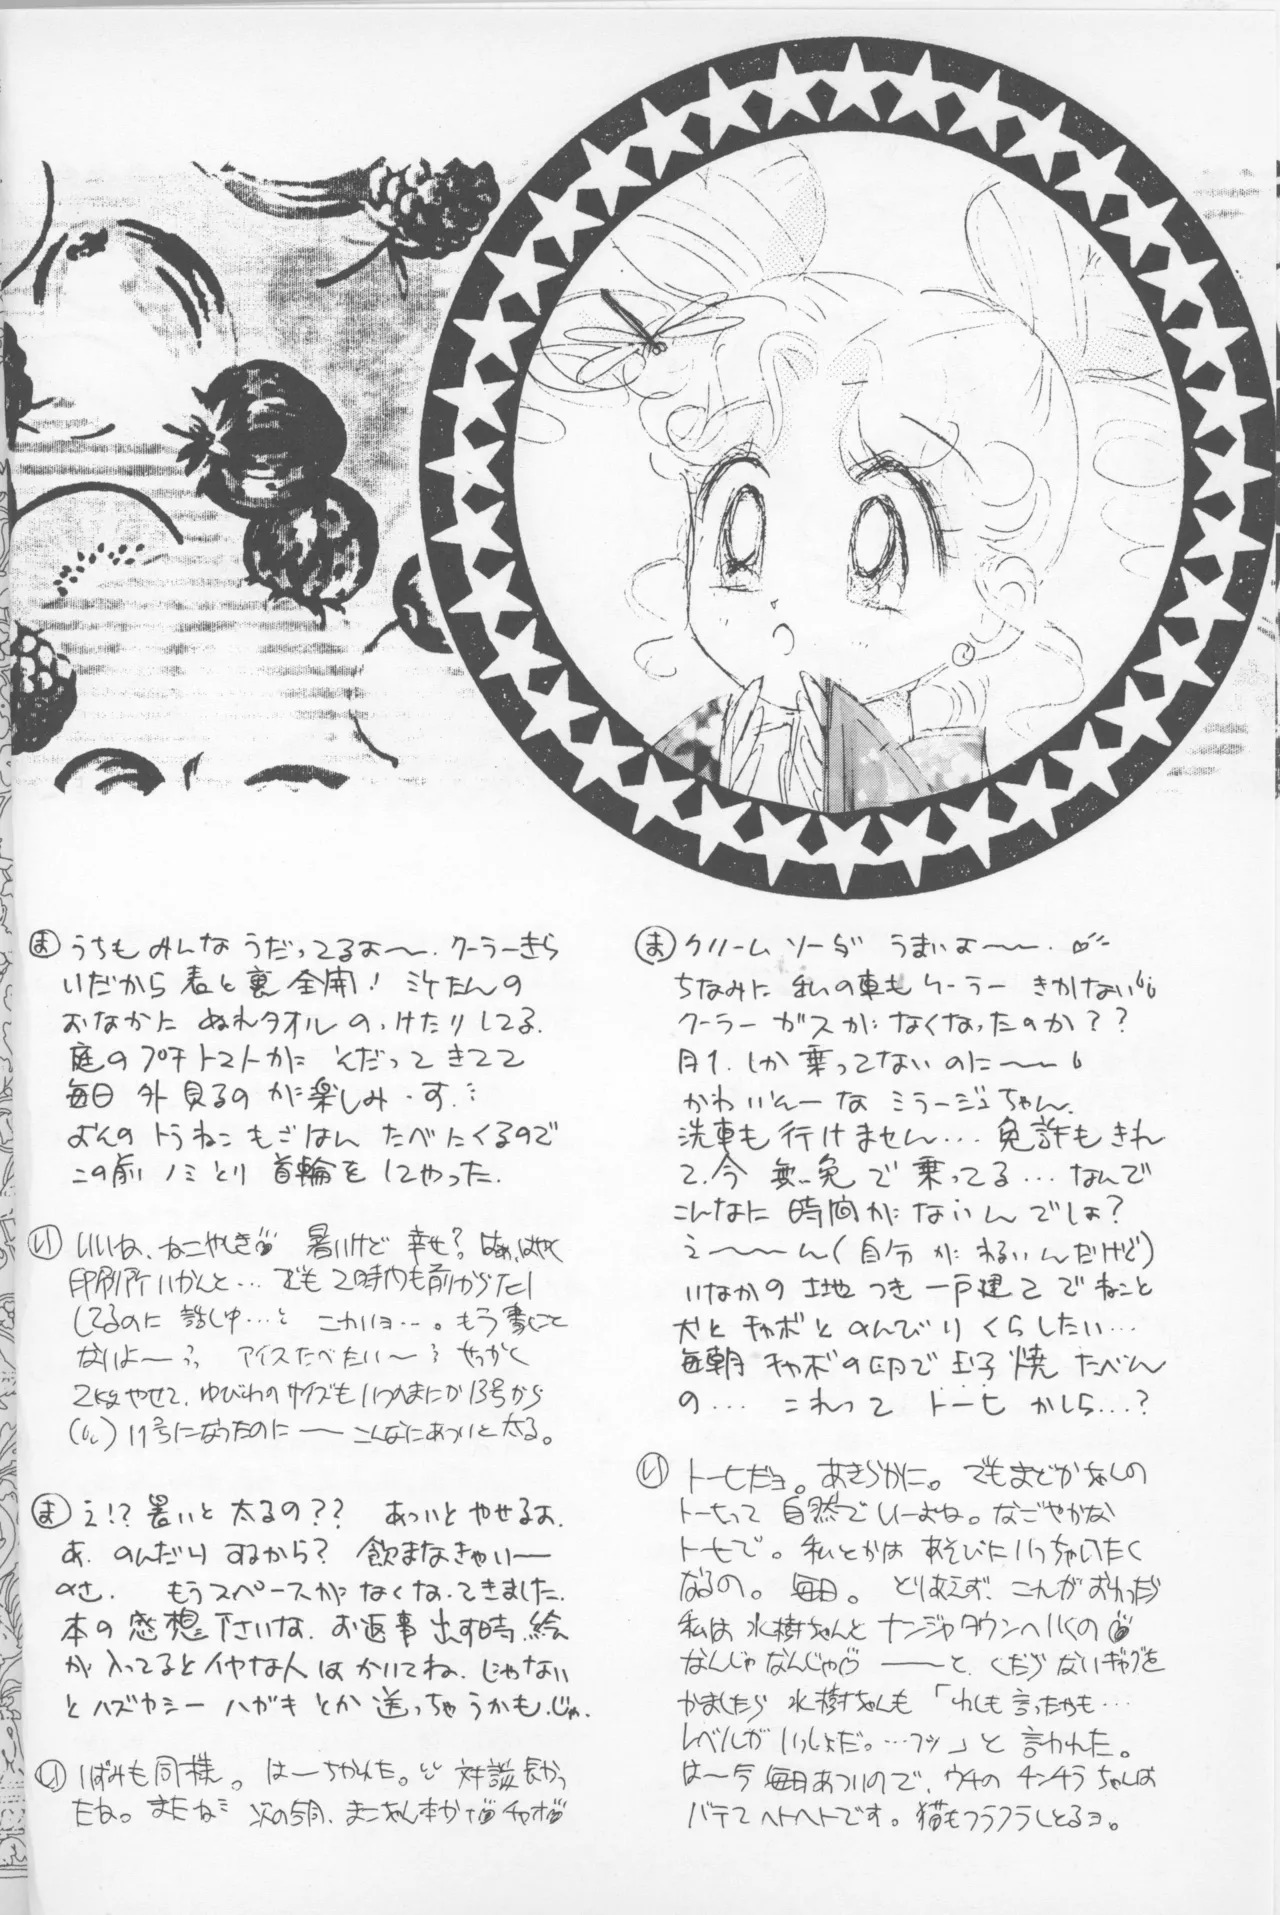 ま クリームソーダ うまいよ〜〜.
ちなみに 私の車も クーラー きかない
クーラー ガスが なくなったのか??
月1.しか乗ってないのに〜〜
かわいんーな ミラージュちゃん.
洗車も行けません... 免許もきれ
て.今 無免で 乗ってる... なんで
こんなに 時間がないんでしょ?
え〜〜ん(自分がわるいんだけど)
いなかの 土地つき 一戸建てで ねこと
犬と チャボと のんびり くらしたい...
毎朝 チャボの卵で 玉子焼 たべん
の... これって トーヒ かしら...?
い トーヒだョ。あきらかに。でもまどかちゃんの
トーヒって 自然で いーよね。なごやかな
トーヒで。私とかは あそびにいっちゃいたく
なるの。毎日。とりあえず、これがおわったら
私は 水樹ちゃんと ナンジャタウンへいくの
なんじゃなんじゃ ーーと、くだらないギャグを
かましたら 水樹ちゃんも「わしも言ったやも...
レベルが いっしょだ。...フッ」と 言われた。
は〜今 毎日あついので、ウチの チンチラちゃんは
バテて ヘトヘトです。猫もフラフラしとるョ。
ま うちも みんな うだってるよ〜〜. クーラーきら
いだから 表と裏 全開! ミケたんの
おなかに ぬれタオル のっけたりしてる.
庭の プチトマトが そだってきてて
毎日 外 見るの が楽しみ・す.
よんの トラねこ もごはん たべにくるので
この前 ノミとり 首輪を してやった.
い いいね、ねこやしき 暑いけど 幸せ? はぁ、はやく
印刷所 いかんと... でも 2時間も前からだし
してるのに 話し中...と こわいョ...。もう書くこと
ないよー アイスたべたい〜 せっかく
2kgやせて、ゆびわのサイズも いつのまにか 13号から
11号になったのに ーー こんなにあついと太る。
ま え!? 暑いと 太るの?? あついと やせるよ.
あ. のんだり するから? 飲まなきゃいー
のさ. もうスペースが なくなってきました.
本の 感想 下さいな. お返事 出す時、絵
が入ってるとイヤな人 は かいてね. じゃない
と ハズカシー ハガキ とか 送っちゃうかも.じゃ.
い いずみも同様。は〜ちかれた。対談 長かっ
たね。またね 次の時、まこちゃん本かで チャオ